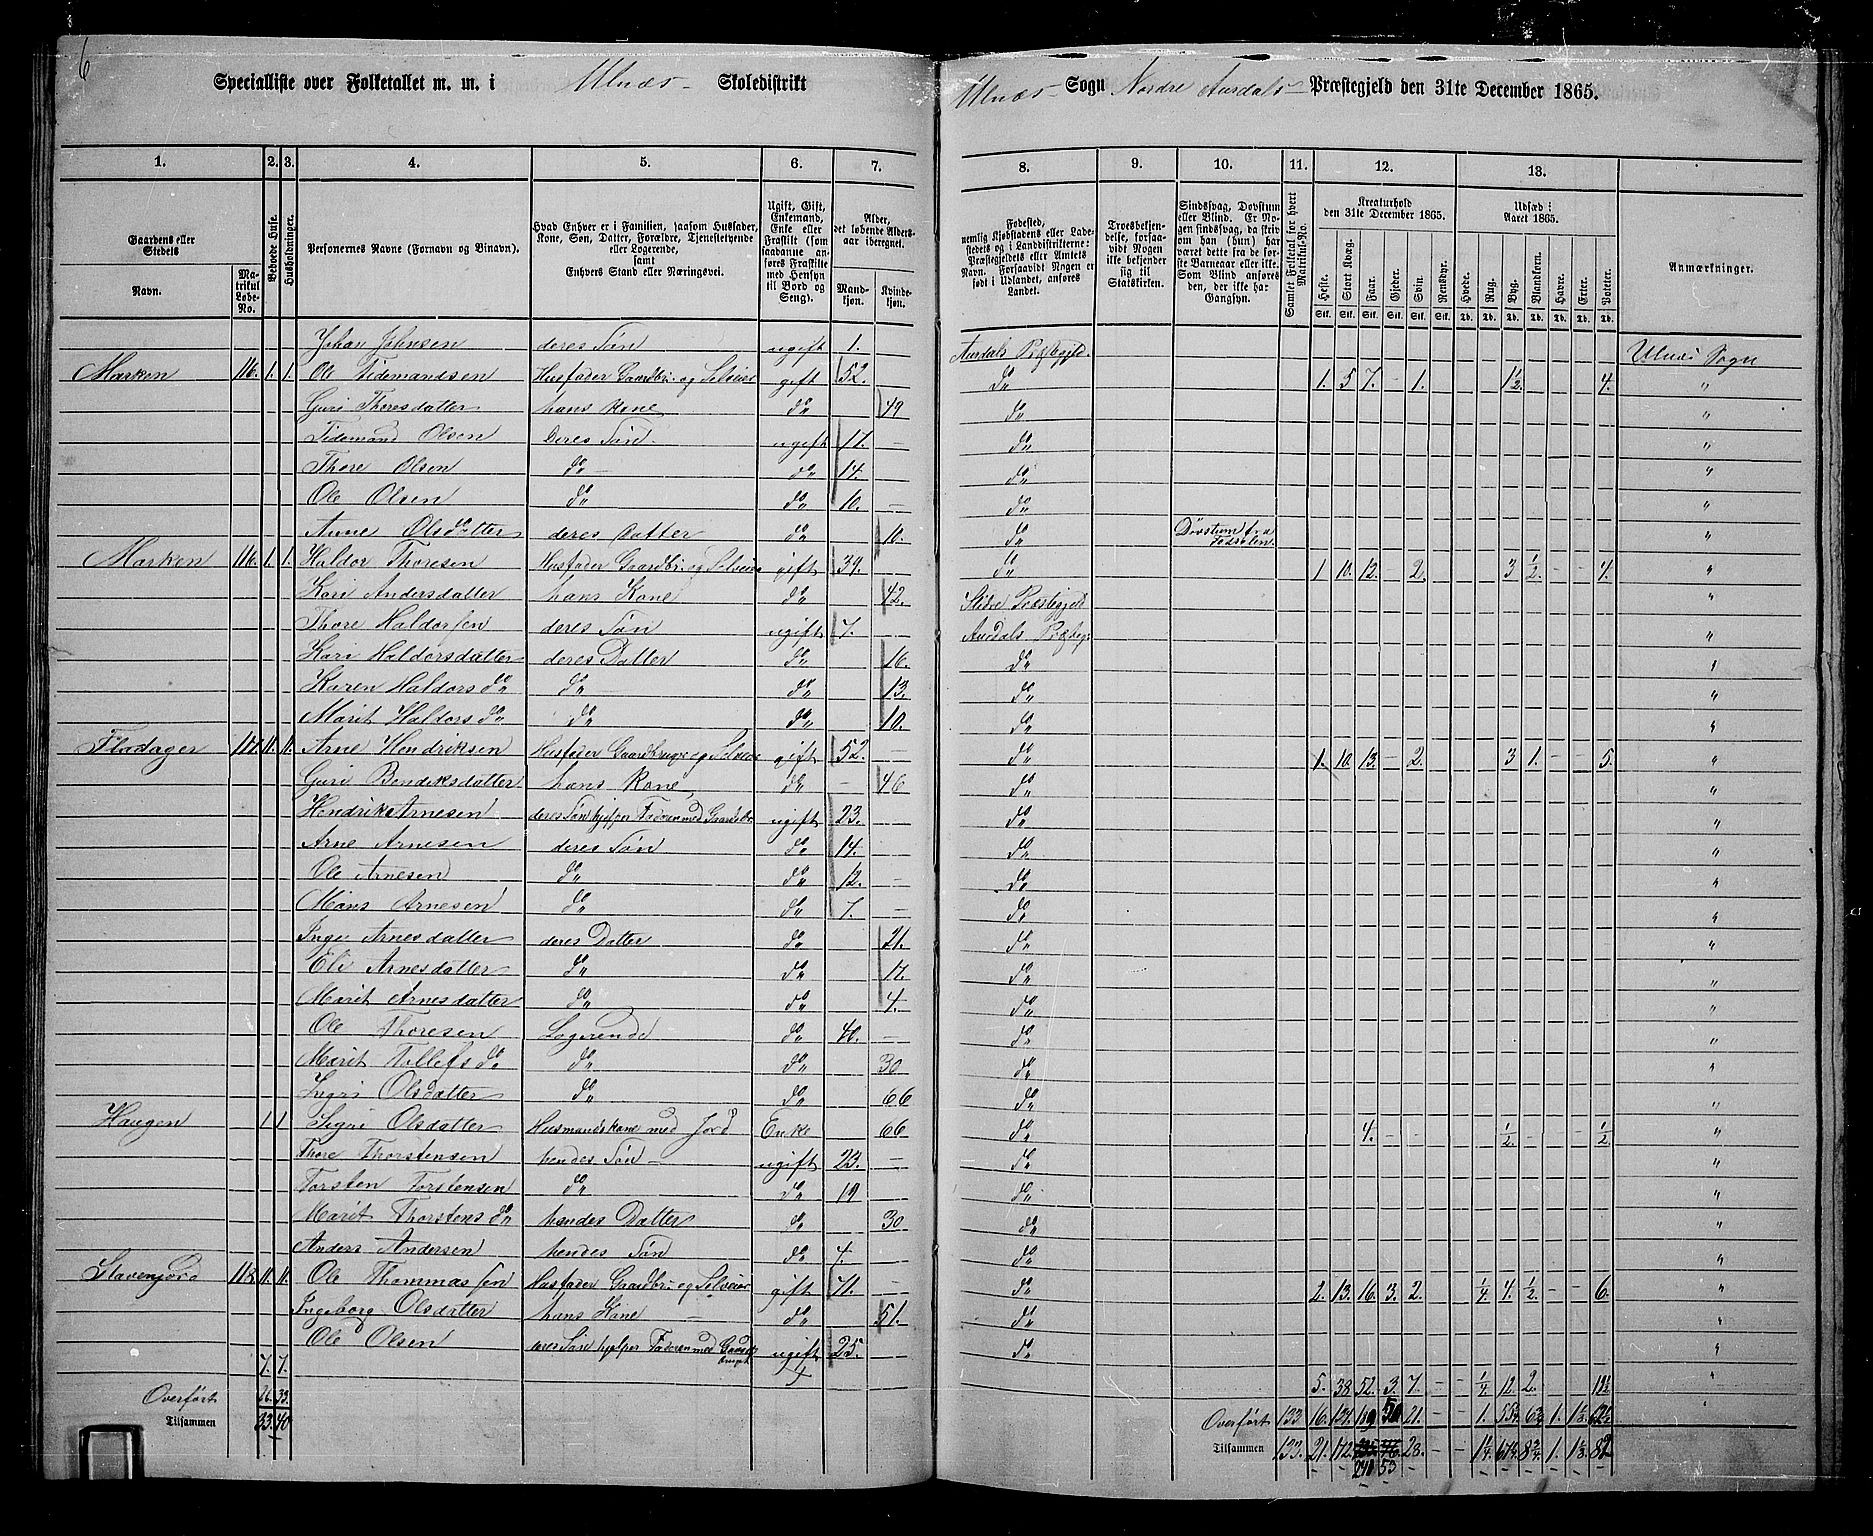 6
Specialliste over Folketallet m. m. i Ulnæs Skoledistrikt Ulnæs Sogn Nordre Aurdals Præstegjeld den 31te December 1865.
1. 2. 3. 4. 5. 6. 7. 8. 9. 10. 11. 12. 13.
Gaardens eller Stedets
Navn.
Matrikul Løbe-No.
Beboede Huse.
Husholdninger.
Personernes Navne (Fornavn og Binavn).
Hvad Enhver er i Familien, saasom Husfader, Kone, Søn, Datter, Forældre, Tjenestetyende eller Logerende, samt Enhvers Stand eller Næringsvei.
Ugift, Gift, Enkemand, Enke eller Fraskilt (som saadanne anføres Fraskilte med Hensyn til Bord og Seng).
Alder, det løbende Aldersaar iberegnet.
Mandkjøn. Kvindekjøn.
Fødested, nemlig Kjøbstadens eller Ladestedets og i Landdistrikterne: Præstegjeldets eller Amtets Navn. Forsaavidt Nogen er født i Udlandet, anføres Landet.
Troesbekjendelse, forsaavidt Nogen ikke bekjender sig til Statskirken.
Sindssvag, Døvstum eller Blind. Er Nogen sindssvag, da skriv om han (hun) har været det fra de første Barneaar eller ikke. Som Blind anføres den, der ikke har Gangsyn.
Samlet Folketal for hvert Matrikul-No.
Kreaturhold den 31te December 1865.
Heste. Stort Kvæg. Faar. Gjeder. Svin. Rensdyr.
Udsæd i Aaret 1865.
Hvede. Rug. Byg. Blandkorn. Havre. Erter. Poteter.
Anmærkninger.
Johan Johnsen deres Søn ugift 1. Aurdals Præstegjld. Ulnæs Sogn
Marken 116. 1. 1. Ole Tidemandsen Husfader Gaardbr. og Selveier gift 52. do 1. 5 7. - 1. 1½ 4. "
Guri Thoresdatter hans Kone do 49 do "
Tidemand Olsen Deres Søn ugift 17. do "
Thore Olsen do do 14. do "
Ole Olsen do do 10. do "
Anne Olsdatter deres Datter do 10. do Døvstum fra Fødselen. "
Marken 116. 1. 1. Haldor Thoresen Husfader Gaardbr. og Selveier gift 39. do 1 10. 12. - 2. 3 ½ - - 4. "
Kari Andersdatter hans Kone do 42. Slidre Præstegjeld "
Thore Haldorsen deres Søn ugift 7. Aurdals Præsteg. "
Kari Haldorsdatter deres Datter do 16. do "
Karen Haldors do do do 13. do "
Marit Haldors do do do 10. do "
Fladager 117. 1. 1. Arne Hendriksen Husfader Gaardbruger og Selveier gift 52. do 1. 10. 13. - 2. 3 1. - - 5. "
Guri Bendiksdatter hans Kone do 46 do "
Hendrik Arnesen deres Søn hjelper Faderen med Gaardsbr. ugift 23. do "
Arne Arnesen deres Søn do 14. do "
Ole Arnesen do do 12. do "
Mons Arnesen do do 7. do "
Inge Arnesdatter deres Datter do 21. do "
Eli Arnesdatter do do 17. do "
Marit Arnesdatter do do 4. do "
Ole Thoresen Logerende do 40. do "
Marit Tollefs do do do 30 do "
Ingri Olsdatter do do 66 do "
Haugen 1 1 Sigri Olsdatter Husmandskone med Jord Enke 66 do 4. - - ½ - ½ "
Thore Thorstensen hendes Søn ugift 23. do "
Torsten Torstensen do do 19 do "
Marit Thorstens do hendes Datter do 30 do "
Anders Andersen hendes Søn do 7. do "
Stavenjord 118. 1. 1. Ole Thommassen Husfader Gaardbr. og Selveier gift 71. do 2. 13. 16. 3. 2. ¼ 4. ½ - - 6. "
Ingeborg Olsdatter hans Kone do 51. do "
Ole Olsen deres Søn hjelper Faderen med Gaards ugift 25. do "
7. 7. 5. 38. 52. 3. 7. - - ¼ 12. 2.
Overført 26. 33. Overført 133 16. 21. - - 1. 1.
Tilsammen 33. 40 Tilsammen 133. 21. 172. 28. - - 1¼ 1.
53